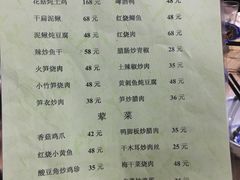 花菇炖土鸡 168 元 啤酒鸭
干扁泥鳅 68 元 红烧鲫鱼 48 元
泥鳅炖豆腐 68 元 红烧肉 48 元
辣炒鱼干 58 元 腊肠炒青椒 48 元
火笋烧肉 48 元 土辣椒炒肉 35 元
小竹笋烧肉 48 元 黄刺鱼炖豆腐 68 元
笋衣炒肉 38 元 笋炒腊肉 48 元
荤 菜
香菇鸡爪 42 元 鸭脚板炒腊肉 35 元
红烧小黄鱼 48 元 干木耳炒肉丝 35 元
酸豆角炒鸡珍 35 元 梅干菜烧肉 48 元